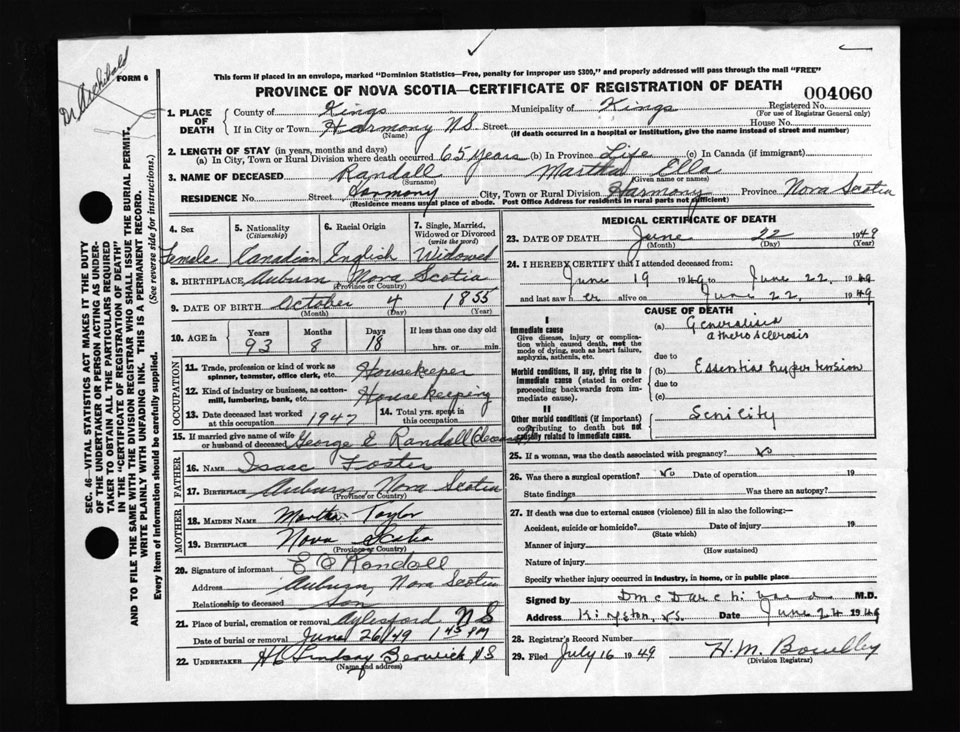 Dr Archibald
FORM 6
This form if placed in an envelope, marked "Dominion Statistics—Free, penalty for improper use $300," and properly addressed will pass through the mail "FREE"
PROVINCE OF NOVA SCOTIA—CERTIFICATE OF REGISTRATION OF DEATH
004060
SEC. 46—VITAL STATISTICS ACT MAKES IT THE DUTY
OF THE UNDERTAKER OR PERSON ACTING AS UNDER-
TAKER TO OBTAIN ALL THE PARTICULARS REQUIRED
IN THE "CERTIFICATE OF REGISTRATION OF DEATH"
AND TO FILE THE SAME WITH THE DIVISION REGISTRAR WHO SHALL ISSUE THE BURIAL PERMIT.
WRITE PLAINLY WITH UNFADING INK. THIS IS A PERMANENT RECORD.
Every item of Information should be carefully supplied. (See reverse side for instructions.)
1. PLACE OF DEATH { County of Kings Municipality of Kings Registered No.
(For use of Registrar General only)
If in City or Town Harmony NS Street House No.
(Name) (If death occurred in a hospital or institution, give the name instead of street and number)
2. LENGTH OF STAY (in years, months and days)
(a) In City, Town or Rural Division where death occurred 65 years (b) In Province Life (c) In Canada (if immigrant)
3. NAME OF DECEASED Randall Martha Ella
(Surname) (Given name or names)
RESIDENCE No. Street Harmony City, Town or Rural Division Harmony Province Nova Scotia
(Residence means usual place of abode. Post Office Address for residents in rural parts not sufficient)
4. Sex
Female
5. Nationality
(Citizenship)
Canadian
6. Racial Origin
English
7. Single, Married,
Widowed or Divorced
(write the word)
Widowed
8. BIRTHPLACE Auburn Nova Scotia
(Province or Country)
9. DATE OF BIRTH October 4 1855
(Month) (Day) (Year)
10. AGE in { Years Months Days If less than one day old
93 8 18 hrs. or min.
OCCUPATION
11. Trade, profession or kind of work as
spinner, teamster, office clerk, etc. Housekeeper
12. Kind of industry or business, as cotton-
mill, lumbering, bank, etc. Housekeeping
13. Date deceased last worked
at this occupation 1947
14. Total yrs. spent in
this occupation
15. If married give name of wife
or husband of deceased George E Randall (deceased)
FATHER
16. NAME Isaac Foster
17. BIRTHPLACE Auburn, Nova Scotia
(Province or Country)
MOTHER
18. MAIDEN NAME Martha Taylor
19. BIRTHPLACE Nova Scotia
(Province or Country)
20. Signature of informant Randall
Address Auburn, Nova Scotia
Relationship to deceased son
21. Place of burial, cremation or removal Aylesford NS
Date of burial or removal June 26/49 1 45 PM
22. UNDERTAKER Lindsay Berwick NS
(Name and address)
MEDICAL CERTIFICATE OF DEATH
23. DATE OF DEATH June 22 1949
(Month) (Day) (Year)
24. I HEREBY CERTIFY that I attended deceased from:
June 19 1949 to June 22, 1949
and last saw h er alive on June 22, 1949
CAUSE OF DEATH
I
Immediate cause
Give disease, injury or complica-
tion which caused death, not the
mode of dying, such as heart failure,
asphyxia, asthenia, etc.
(a) Generalised
atherosclerosis
due to
Morbid conditions, if any, giving rise to
immediate cause (stated in order
proceeding backwards from im-
mediate cause).
(b) Essential hypertension
due to
(c)
II
Other morbid conditions (if important)
contributing to death but not
causally related to immediate cause.
Senility
25. If a woman, was the death associated with pregnancy? No
26. Was there a surgical operation? No Date of operation 19
State findings Was there an autopsy?
27. If death was due to external causes (violence) fill in also the following:—
Accident, suicide or homicide? Date of injury 19
(State which)
Manner of injury
(How sustained)
Nature of injury
Specify whether injury occurred in industry, in home, or in public place
Signed by M.D.
Address Kingston, N.S. Date June 24 1949
28. Registrar's Record Number
29. Filed July 16 1949 H.M.
(Division Registrar)